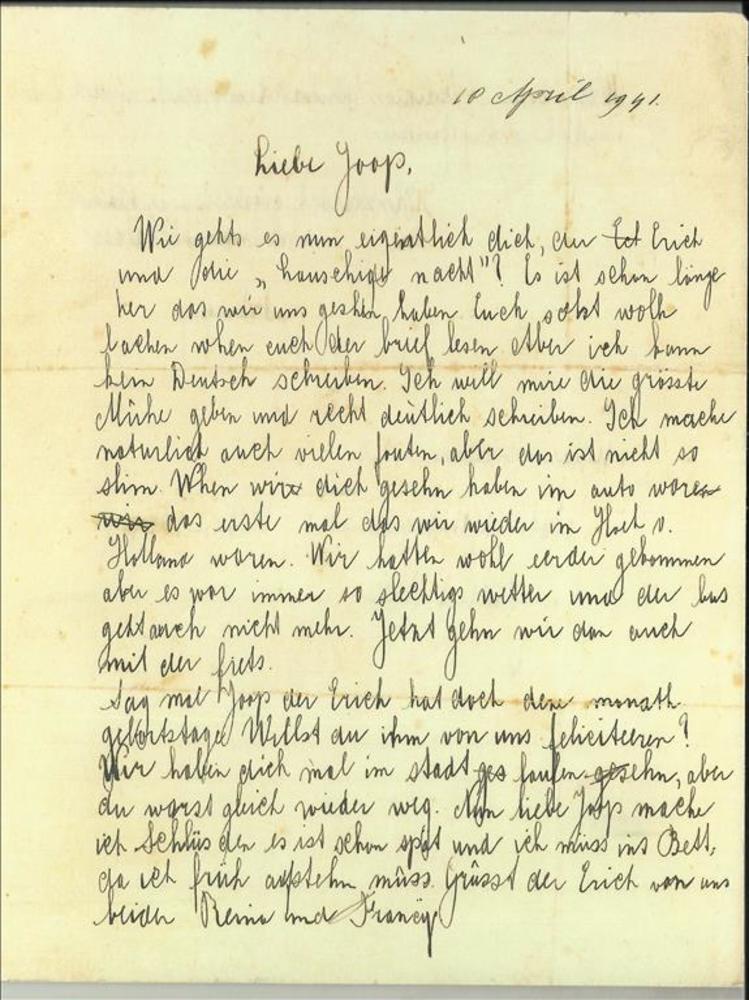 10 April 1941.
Liebe Joop,
Wie gehts es nun eigentlich dich, der Erich
und die „ hauschige nacht"? Es ist schon länge
her das wir uns geshen haben Euch solst wolh
lachen when euch der brief lesen Aber ich kann
kein Deutsch schreiben. Ich will mire die grösste
Mühe geben und recht deütlich schreiben. Ich mache
naturlich auch vielen fouten, aber das ist nicht so
slim. When wir dich gesehn haben im auto waren
wir das erste mal das wir wieder in Hoek v.
Holland waren. Wir hatten wohl eerder gekommen
aber es war immer so slechtigs wetter und der bus
geht auch nicht mehr. Jetzt gehn wir dan auch
mit der fiets.
Sag mal Joop der Erich hat doch deze monath
geburtstage Willst du ihm von uns feliciteeren?
Wir haben dich mal im stadt ges laufen gesehn, aber
du warst gleich wieder weg. Nun liebe Joop mache
ich Schlüs den es ist schon spät und ich müss ins Bett,
da ich früh aufstehn müss. Grüsst der Erich von uns
beider Reina und